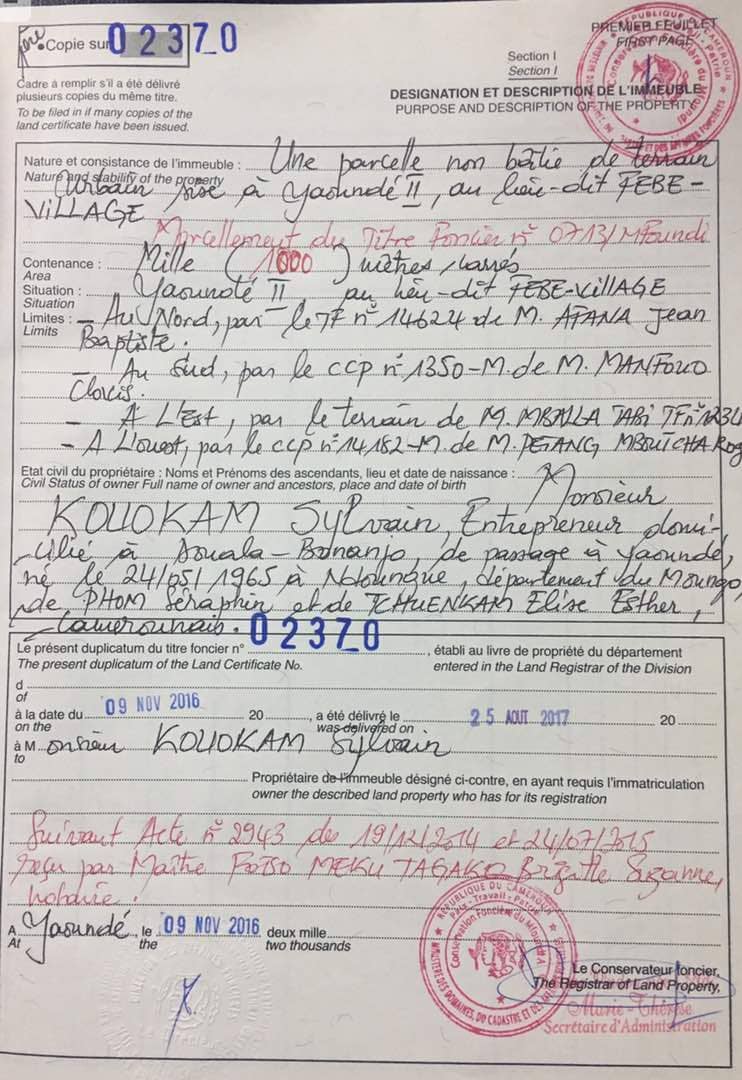 1ère Copie sur 02370
PREMIER FEUILLET
FIRST PAGE
Section I
Section I
Cadre à remplir s'il a été délivré
plusieurs copies du même titre.
To be filed in if many copies of the
land certificate have been issued.
DESIGNATION ET DESCRIPTION DE L'IMMEUBLE
PURPOSE AND DESCRIPTION OF THE PROPERTY
Nature et consistance de l'immeuble : Une parcelle non bâtie de terrain
Nature and stability of the property
Urbain sise à Yaoundé II, au lieu-dit FEBE-
VILLAGE
Morcellement du Titre Foncier n° 0713/Mfoundi
Contenance : Mille (1000) mètres carrés
Area
Situation : Yaoundé II au lieu-dit FEBE-VILLAGE
Situation
Limites : - Au Nord, par le TF n° 14624 de M. ATANA Jean
Limits
Baptiste.
- Au Sud, par le ccp n° 1350-M. de M. MANFOUO
Clovis.
- A L'Est, par le terrain de M. MBALLA TABI TF n°
- A L'ouest, par le ccp n° 14182-M. de M. PETANG MBOUTCHA Rog
Etat civil du propriétaire : Noms et Prénoms des ascendants, lieu et date de naissance : Monsieur
Civil Status of owner Full name of owner and ancestors, place and date of birth
KOUOKAM Sylvain, Entrepreneur domi-
cilié à Douala-Bonanjo, de passage à Yaoundé,
né le 24/05/1965 à Ndoungue, département du Moungo,
de PHOM Séraphin et de TCHUENKAM Elise Esther,
Camerounais.
Le présent duplicatum du titre foncier n° 02370, établi au livre de propriété du département
The present duplicatum of the Land Certificate No. entered in the Land Registrar of the Division
d
of
à la date du 09 NOV 2016 20 , a été délivré le 25 AOUT 2017 20
on the was delivered on
à Monsieur KOUOKAM Sylvain
to
Propriétaire de l'immeuble désigné ci-contre, en ayant requis l'immatriculation
owner the described land property who has for its registration
Suivant Acte n° 2943 des 19/12/2014 et 24/07/2015
reçu par Maître FOTSO MEKU TAGAKO Brigitte Suzanne,
notaire.
A Yaoundé, le 09 NOV 2016 deux mille
At the two thousands
REPUBLIQUE DU CAMEROUN
Paix - Travail - Patrie
Conservation Foncière du Mfoundi
MINISTERE DES DOMAINES, DU CADASTRE ET DES AFFAIRES FONCIERES
Le Conservateur foncier,
The Registrar of Land Property,
Marie-Thérèse
Secrétaire d'Administration